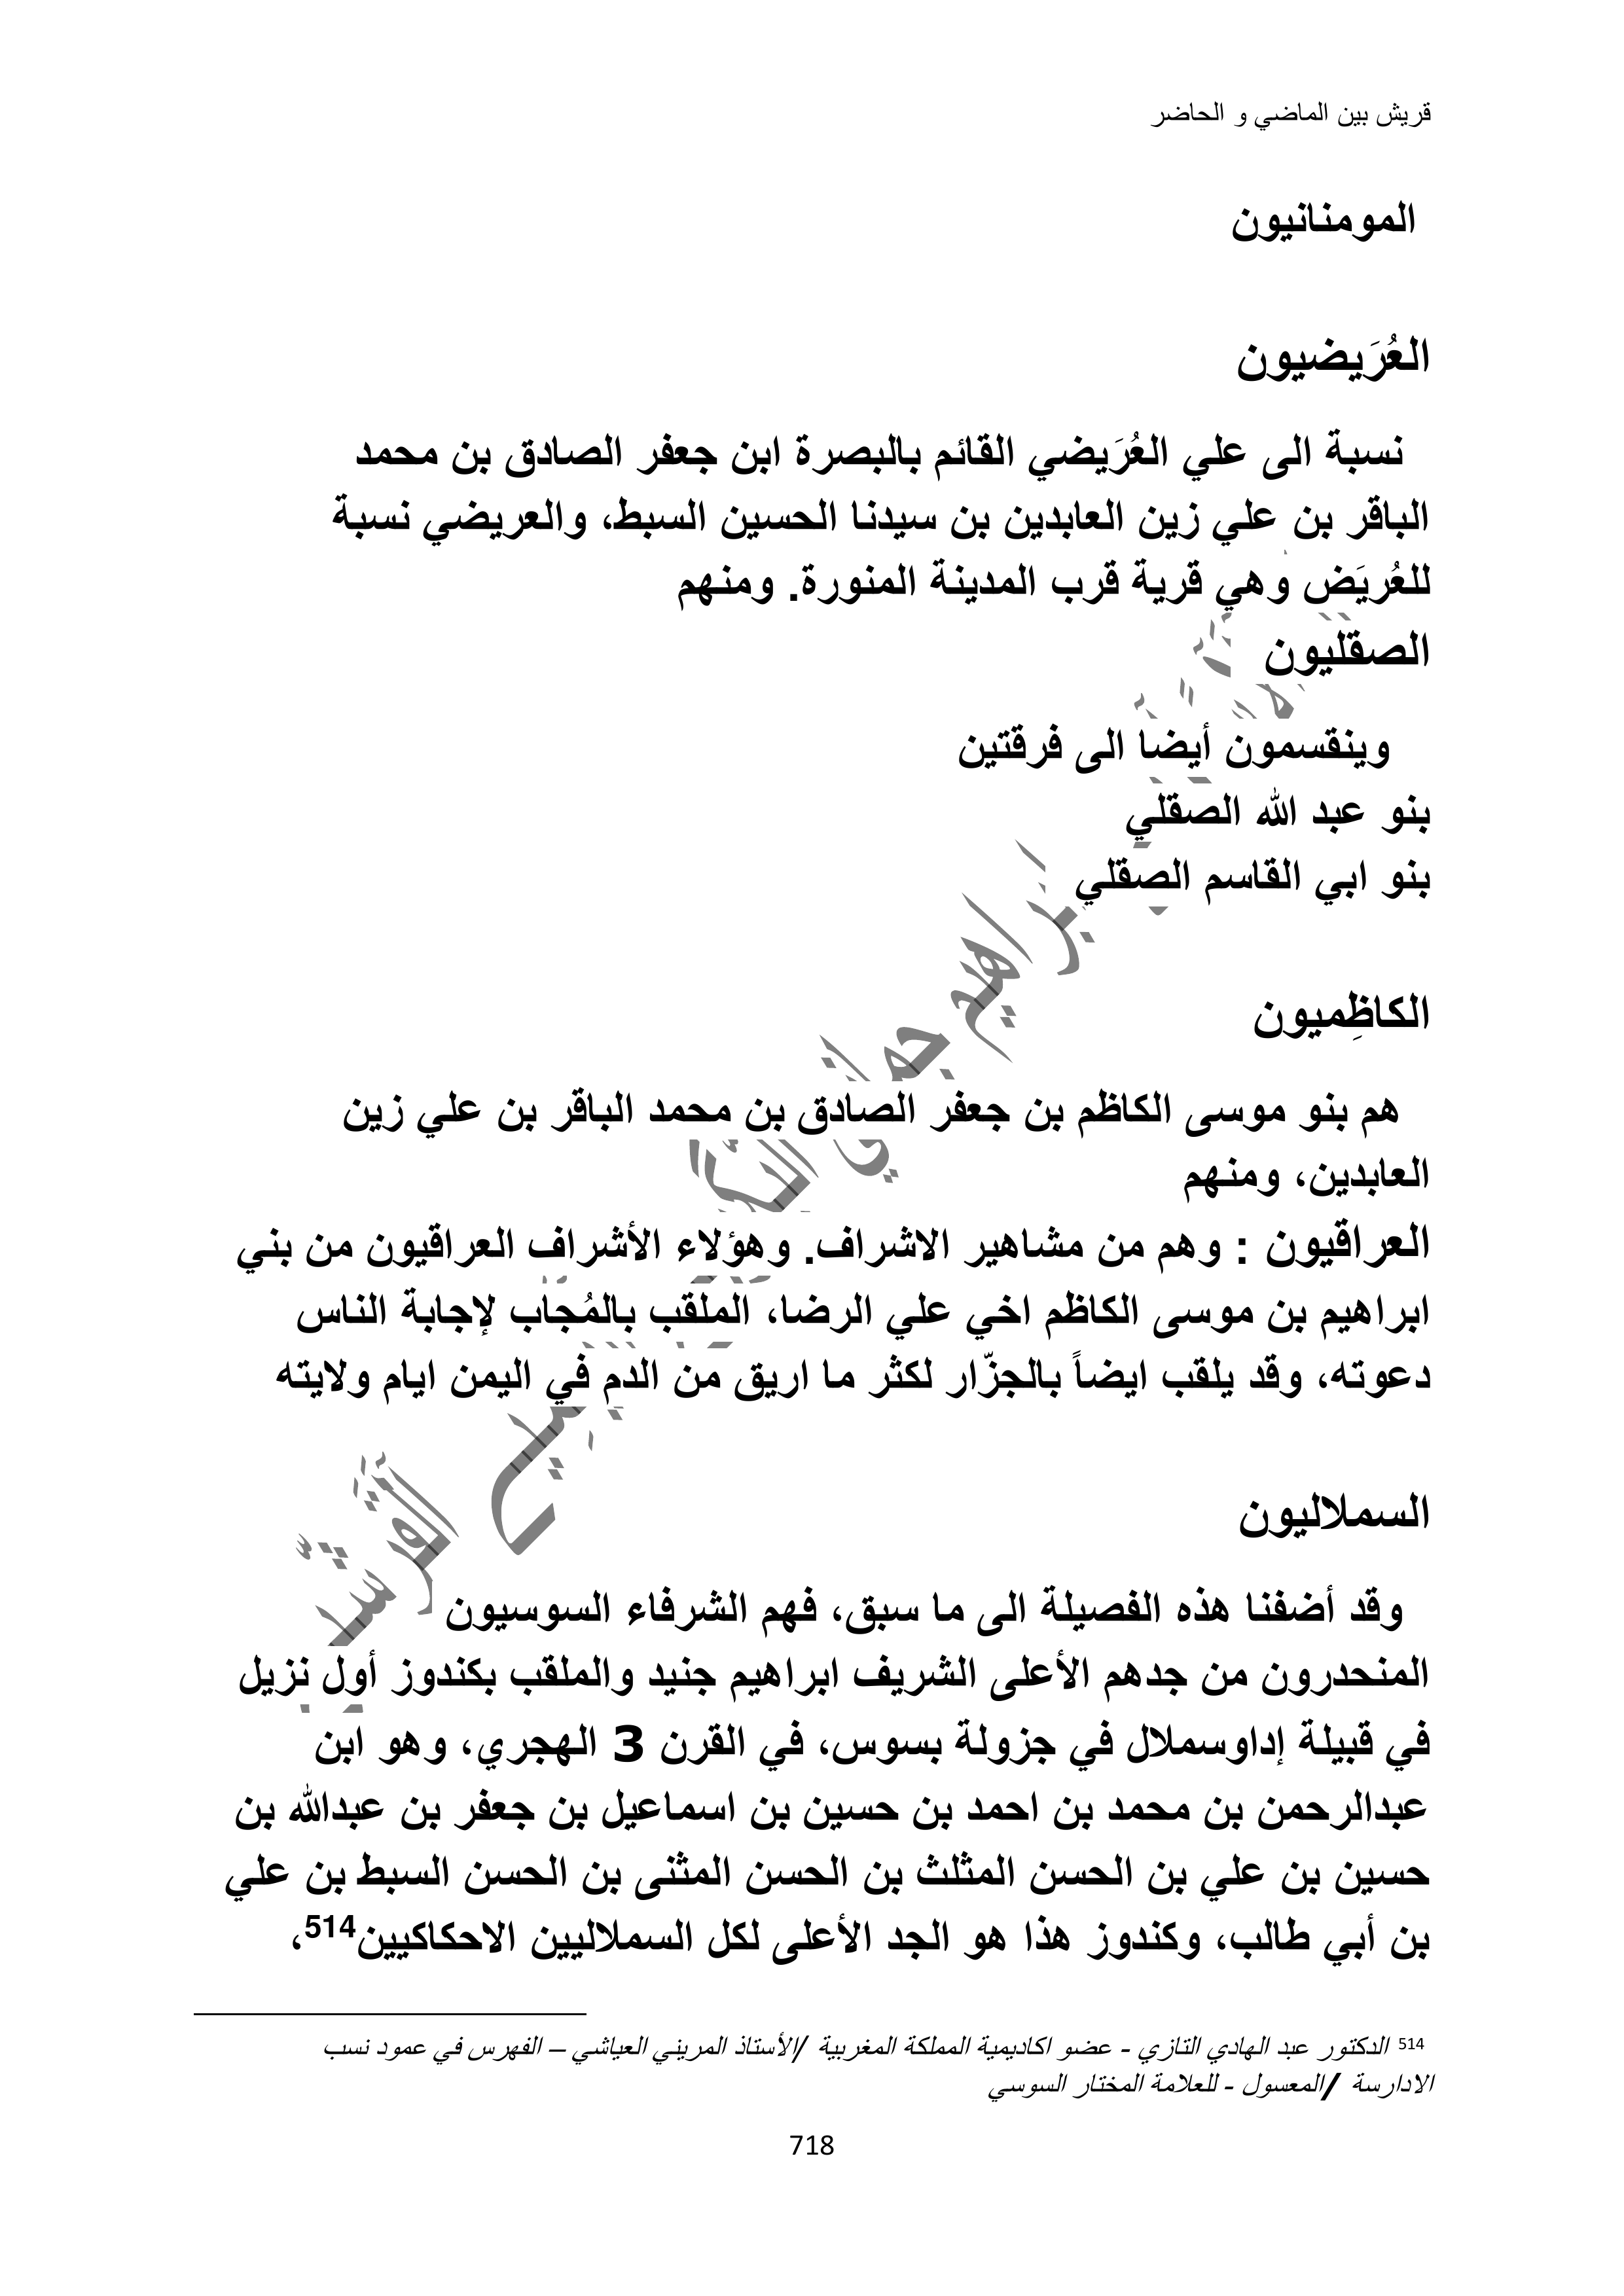 قريش بين الماضي و الحاضر
المومنانيون
العُرَيضيون
نسبة الى علي العُرَيضي القائم بالبصرة ابن جعفر الصادق بن محمد
الباقر بن علي زين العابدين بن سيدنا الحسين السبط، والعريضي نسبة
للعُريَض وهي قرية قرب المدينة المنورة. ومنهم
الصقليون
وينقسمون أيضا الى فرقتين
بنو عبد الله الصقلي
بنو ابي القاسم الصقلي
الكاظِميون
هم بنو موسى الكاظم بن جعفر الصادق بن محمد الباقر بن علي زين
العابدين، ومنهم
العراقيون : وهم من مشاهير الاشراف. وهؤلاء الأشراف العراقيون من بني
ابراهيم بن موسى الكاظم اخي علي الرضا، الملقب بالمُجاب لإجابة الناس
دعوته، وقد يلقب ايضاً بالجزّار لكثر ما اريق من الدم في اليمن ايام ولايته
السملاليون
وقد أضفنا هذه الفصيلة الى ما سبق، فهم الشرفاء السوسيون
المنحدرون من جدهم الأعلى الشريف ابراهيم جنيد والملقب بكندوز أول نزيل
في قبيلة إداوسملال في جزولة بسوس، في القرن 3 الهجري، وهو ابن
عبدالرحمن بن محمد بن احمد بن حسين بن اسماعيل بن جعفر بن عبدالله بن
حسين بن علي بن الحسن المثلث بن الحسن المثنى بن الحسن السبط بن علي
بن أبي طالب، وكندوز هذا هو الجد الأعلى لكل السملاليين الاحكاكيين514،
514 الدكتور عبد الهادي التازي - عضو اكاديمية المملكة المغربية /الأستاذ المريني العياشي – الفهرس في عمود نسب
الادارسة /المعسول - للعلامة المختار السوسي
718